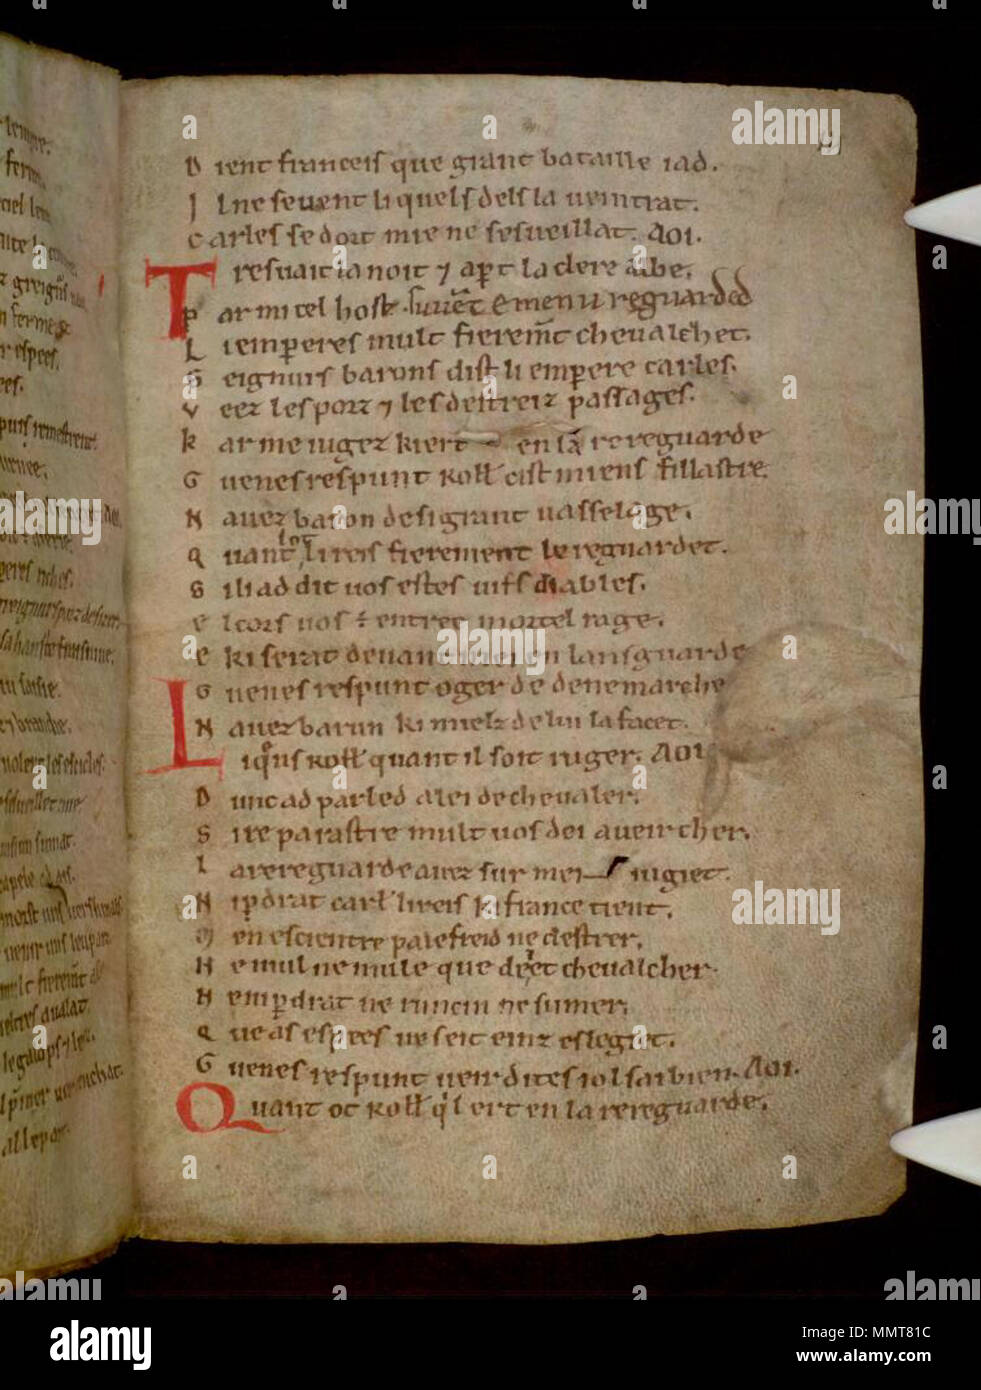 D ient franceis que grant bataille iad.
I lne sevent li quels dels la veintrat.
C arles se dort mie ne sesveillat. AOI.
T resvait la noit ⁊ apert la clere albe.
P ar mi cel host suvent e menu reguarded
L iemperes mult fierement chevalchet.
S eignurs baruns dist li emperere carles.
V eez les porz ⁊ les destreiz passages.
K ar me iugez ki ert en la rereguarde
G uenes respunt Roll cist miens fillastre.
N avez baron de si grant vasselage.
Q uant lot li reis fierement le reguardet.
S i li ad dit vos estes vifs diables.
E l cors vos est entree mortel rage.
E ki serat devant mei en lansguarde
G uenes respunt oger de denemarche
N avez barun ki mielz de lui la facet.
L i quens Roll quant il soit iuger. AOI
D unc ad parled a lei de chevaler.
S ire parastre mult vos dei aveir cher.
L a rereguarde avez sur mei iugiet.
N i perdrat carl li reis ki france tient.
M en escientre palefreid ne destrer.
N e mul ne mule que deiet chevalcher.
N e nperdrat ne runcin ne sumer.
Q ue as espees ne seit einz eslegiet.
G uenes respunt veir dites iol sai bien. AOI.
Q uant ot Roll quil ert en la rereguarde.
alamy
Image ID: MMT81C
www.alamy.com